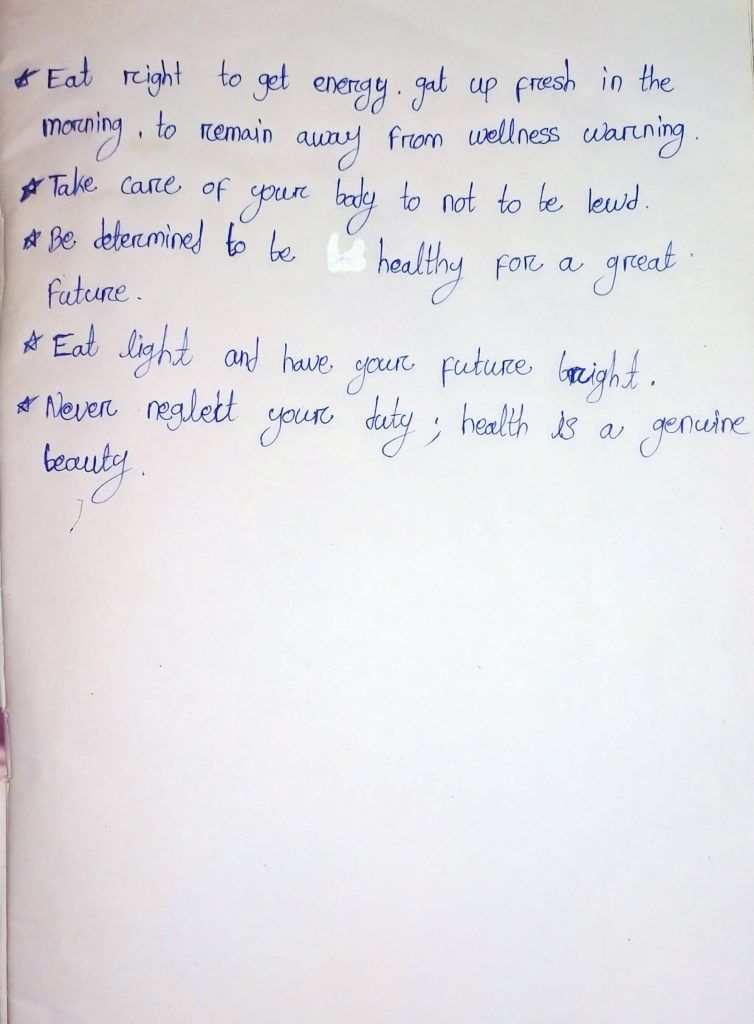 ☆ Eat right to get energy. gat up fresh in the
morning, to remain away from wellness warning.
☆ Take care of your body to not to be lewd.
☆ Be determined to be healthy for a great
future.
☆ Eat light and have your future bright.
☆ Never neglect your duty; health is a genuine
beauty.